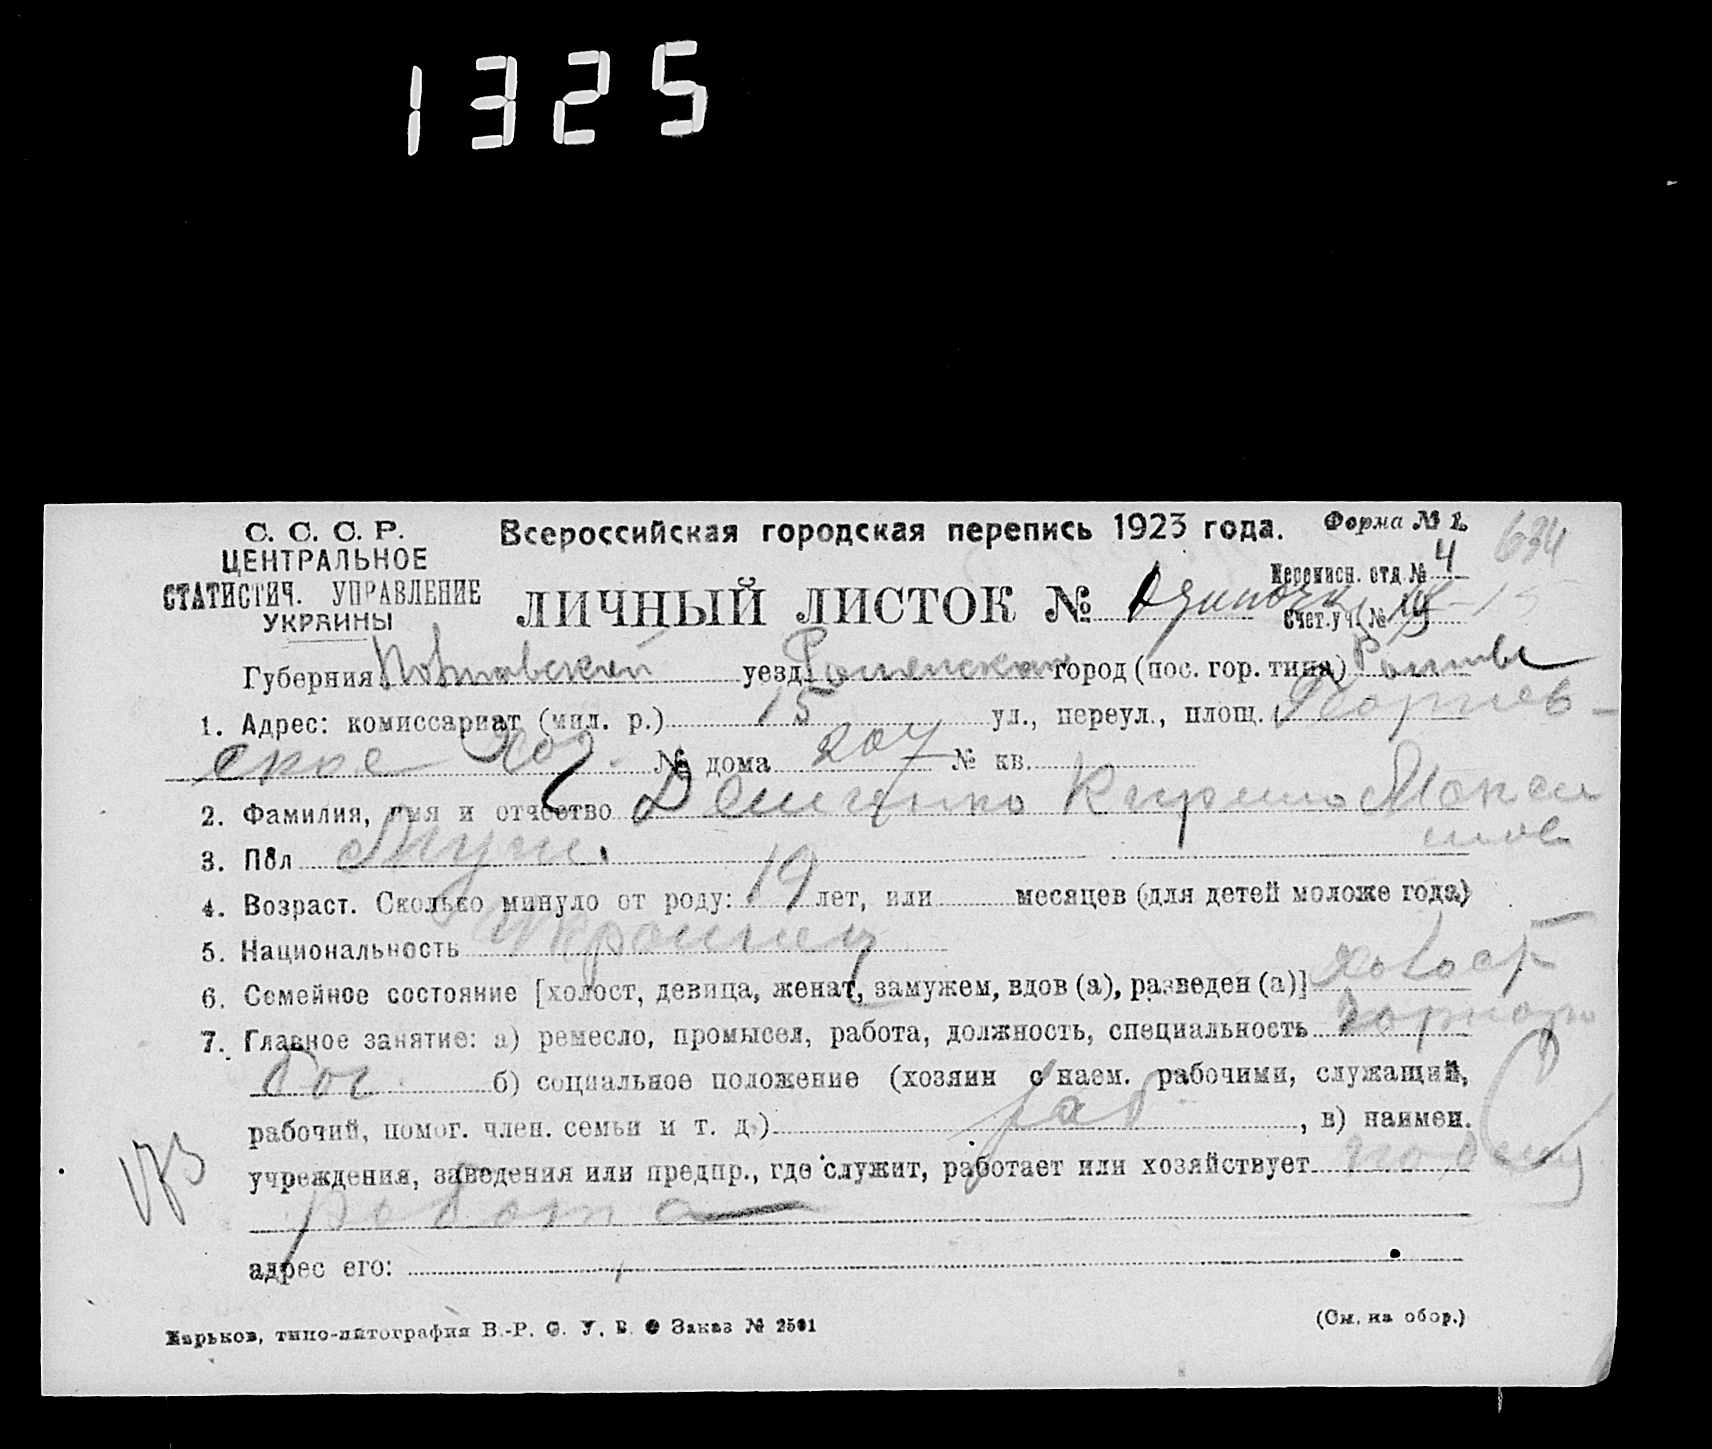 1325
С. С. С. Р. Всероссийская городская перепись 1923 года. Форма № 1. 634
ЦЕНТРАЛЬНОЕ Переписн. отд. № 4
СТАТИСТИЧ. УПРАВЛЕНИЕ ЛИЧНЫЙ ЛИСТОК № Одиночка Счет. уч. №
УКРАИНЫ
Губерния Полтавской уезд Роменский город (пос. гор. типа) Ромны
1. Адрес: комиссариат (мил. р.) 15 ул., переул., площ.
ское № дома 204 № кв.
2. Фамилия, имя и отчество Демченко Кирило Макси
мов
3. Пол Муж.
4. Возраст. Сколько минуло от роду: 19 лет, или месяцев (для детей моложе года)
5. Национальность Украинец
6. Семейное состояние [холост, девица, женат, замужем, вдов (а), разведен (а)] холост
7. Главное занятие: а) ремесло, промысел, работа, должность, специальность
б) социальное положение (хозяин с наем. рабочими, служащий,
рабочий, помог. член. семьи и т. д.) раб. , в) наимен.
учреждения, заведения или предпр., где служит, работает или хозяйствует поден
работа
адрес его:
Харьков, типо-литография В.-Р. С. У. В. Заказ № 2501 (См. на обор.)